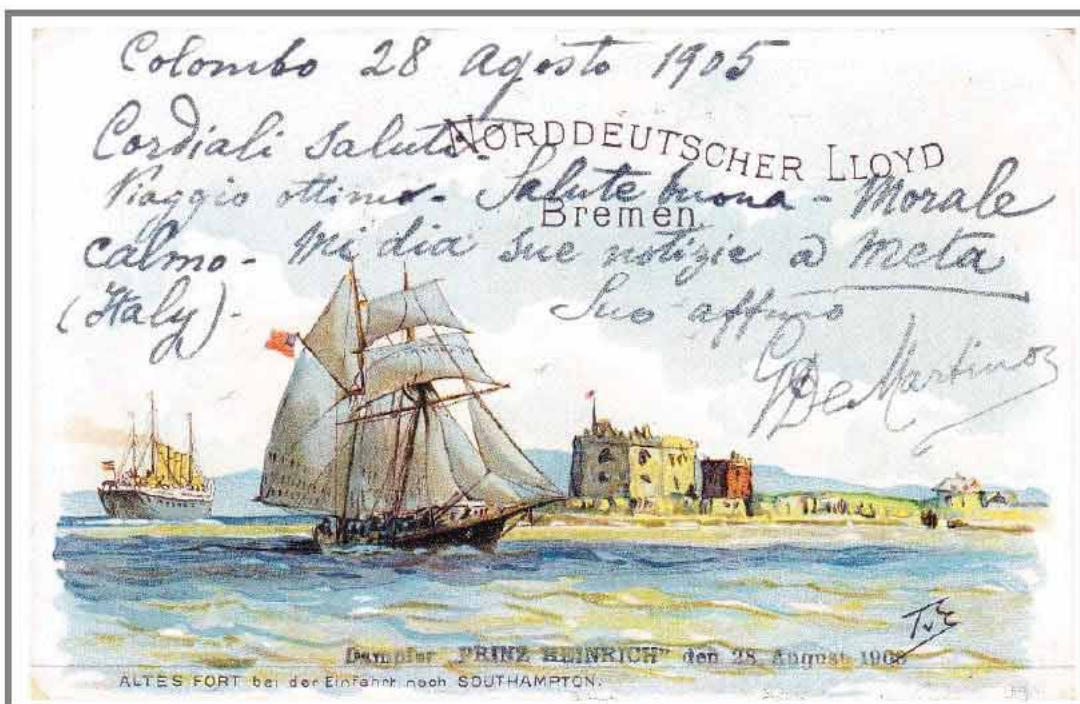 Colombo 28 Agosto 1905
Cordiali saluti.
NORDDEUTSCHER LLOYD
Viaggio ottimo - Salute buona - Morale
Bremen.
calmo - Mi dia sue notizie a Meta
(Italy) - Suo affmo
G De Martino
TvE
Dampfer "PRINZ HEINRICH" den 28. August 190
ALTES FORT bei der Einfahrt nach SOUTHAMPTON.